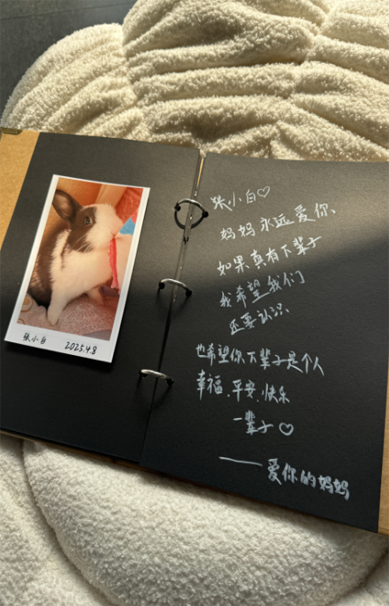 张小白
2025.4.8
张小白♡
妈妈永远爱你、
如果真有下辈子
我希望我们
还要认识
也希望你下辈子是个人
幸福、平安、快乐
一辈子♡
——爱你的妈妈